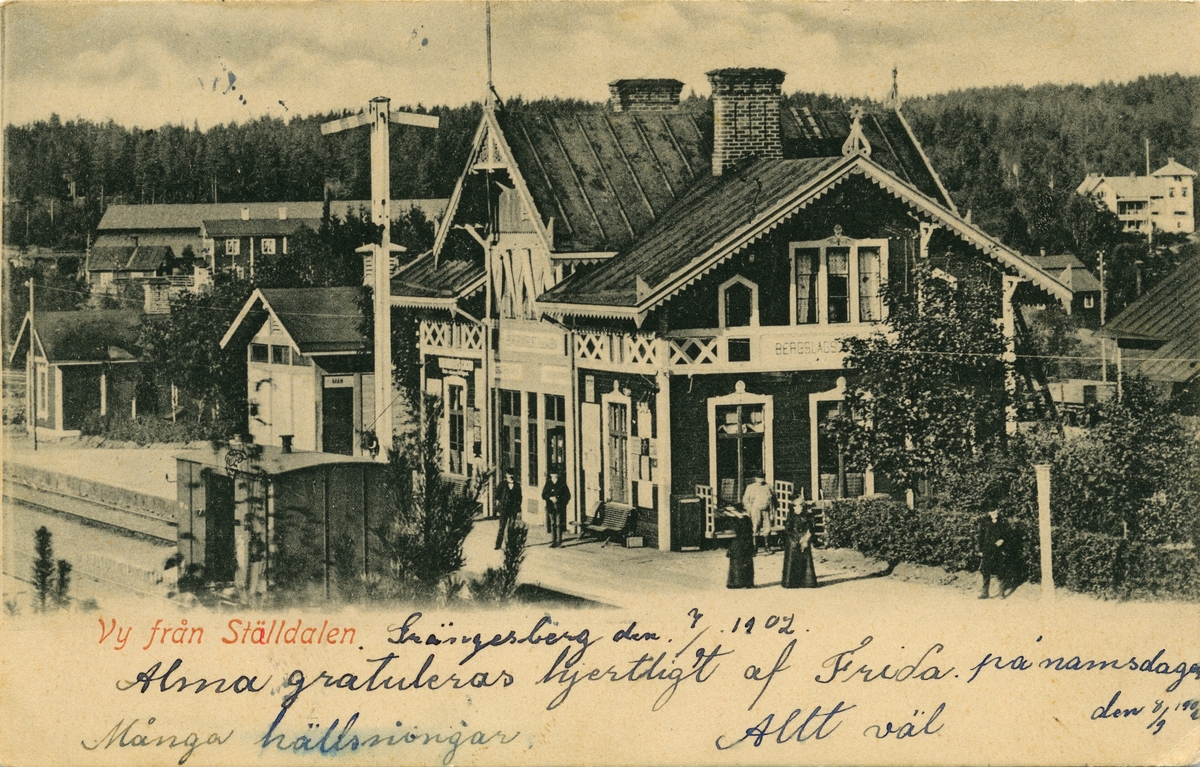 BERGSLAGS
MÄN
Vy från Ställdalen. Grängesberg den 7/ 1902.
Alma gratuleras hjertligt af Frida. på namsdagen
den 8/9 190
Många hällsningar. Allt väl